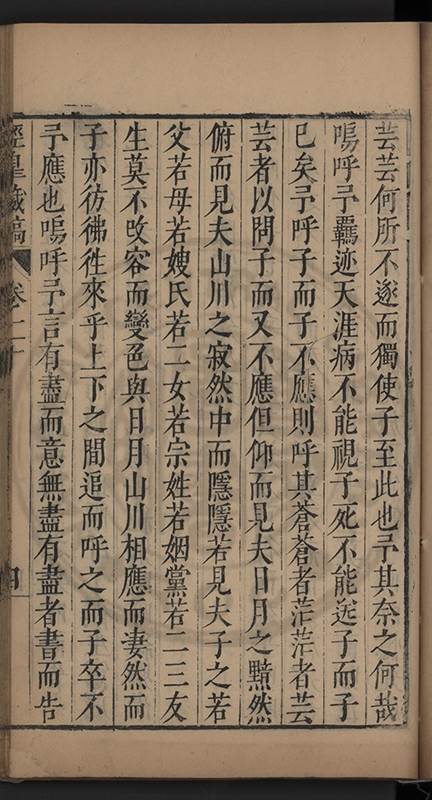 芸芸何所不遂而獨使子至此也予其奈之何哉
嗚呼予羈迹天涯病不能視子死不能送子而子
已矣予呼子而子不應則呼其蒼蒼者茫茫者芸
芸者以問子而又不應但仰而見夫日月之黯然
俯而見夫山川之寂然中而隱隱若見夫子之若
父若母若嫂氏若二女若宗姓若姻黨若二三友
生莫不改容而變色與日月山川相應而凄然而
子亦彷彿徃來乎上下之間追而呼之而子卒不
予應也嗚呼予言有盡而意無盡有盡者書而告
經皇藏稿
卷二十
四